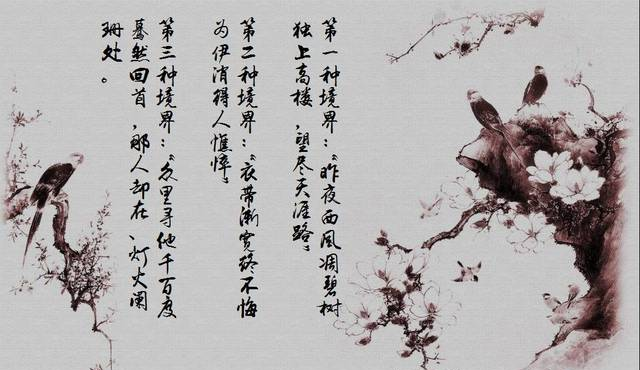 第一种境界：“昨夜西风凋碧树
独上高楼，望尽天涯路”
第二种境界：“衣带渐宽终不悔
为伊消得人憔悴”
第三种境界：“众里寻他千百度
蓦然回首，那人却在、灯火阑
珊处。